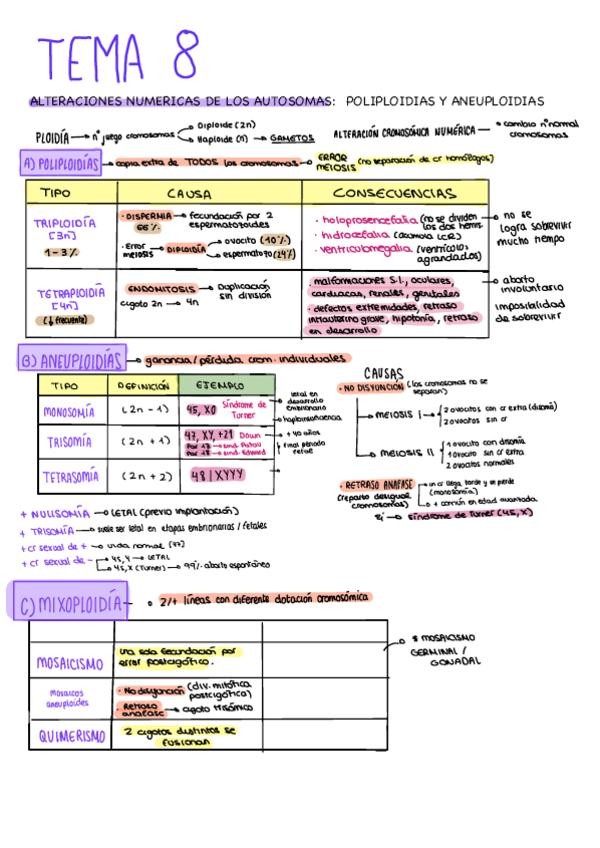 TEMA 8
ALTERACIONES NUMERICAS DE LOS AUTOSOMAS: POLIPLOIDIAS Y ANEUPLOIDIAS
PLOIDÍA → nº juego cromosomas
Diploide (2n)
Haploide (n) → GAMETOS
ALTERACIÓN CROMOSÓMICA NUMÉRICA → cambio nº normal
cromosomas
A) POLIPLOIDÍAS → copia extra de TODOS los cromosomas → ERROR
MEIOSIS (no separación de cr homólogos)
TIPO CAUSA CONSECUENCIAS
TRIPLOIDÍA
[3n]
1-3%
· DISPERMIA → fecundación por 2
66% espermatozoides
· Error
meiosis → DIPLOIDÍA
ovocito (10%)
espermatozo (24%)
· holoprosencefalia (no se dividen
los dos hemis.
· hidrocefalia (acumula LCR)
· ventriculomegalia (ventrículos
agrandados)
→ no se
logra sobrevivir
mucho tiempo
TETRAPLOIDÍA
[4n]
(↓ frecuente)
ENDOMITOSIS → Duplicación
sin división
cigoto 2n → 4n
· malformaciones S.I., oculares,
cardiacas, renales, genitales
· defectos extremidades, retraso
intrauterino grave, hipotonía, retraso
en desarrollo
→ aborto
involuntario
imposibilidad
de sobrevivir
B) ANEUPLOIDÍAS → ganancia/pérdida crom. individuales
TIPO DEFINICIÓN EJEMPLO
MONOSOMÍA (2n - 1) 45, X0 Síndrome de
Turner
→ letal en
desarrollo
embrionario
→ haploinsuficiencia
TRISOMÍA (2n + 1) 47, XY, +21 Down
Par 13 → sínd. Patau
Par 18 → sind. Edward
→ + 40 años
→ final periodo
fetal
TETRASOMÍA (2n + 2) 48, XYYY
CAUSAS
· NO DISYUNCIÓN (los cromosomas no se
separan)
→ MEIOSIS I →
2 ovocitos con cr extra (disomía)
2 ovocitos sin cr
→ MEIOSIS II
1 ovocito con disomía
1 ovocito sin cr extra
2 ovocitos normales
· RETRASO ANAFASE
(reparto desigual
cromosomas)
→ un cr llega tarde y se pierde
(monosomía)
→ + común en edad avanzada
Ej → Síndrome de Turner (45, X)
+ NULISOMÍA → LETAL (previo implantación)
+ TRISOMÍA → suele ser letal en etapas embrionarias / fetales
+ cr sexual de + → vida normal (47)
+ cr sexual de -
→ 45, Y → LETAL
→ 45, X (Turner) → 99% aborto espontáneo
C) MIXOPLOIDÍA → 2/+ líneas con diferente dotación cromosómica
MOSAICISMO una sola fecundación por
error postcigótico.
→ * MOSAICISMO
GERMINAL /
GONADAL
Mosaicos
aneuploides
· No disyunción (div. mitótica
postcigótica)
· Retraso
anafase → cigoto trisómico
QUIMERISMO 2 cigotos distintos se
fusionan